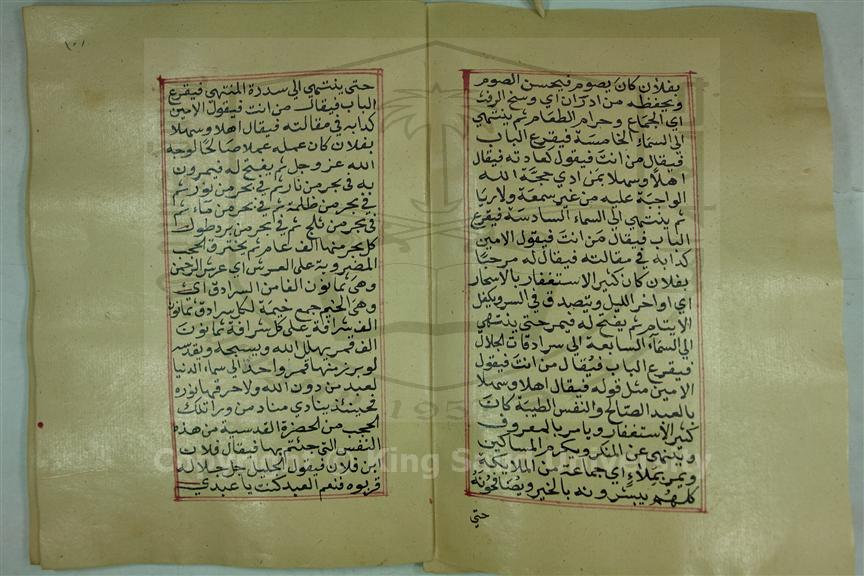 بفلان كان يصوم فيحسن الصوم
ويحفظه من ادران أي وسخ الرفث
اي الجماع وحرام الطعام ثم ينتهي
الى السماء الخامسة فيقرع الباب
فيقال من انت فيقول كعادته فيقال
اهلا وسهلا بمن ادي حجة الله
الواجبة عليه من غير سمعة ولا ريا
ثم ينتهي الى السماء السادسة فيقرع
الباب فيقال من انت فيقول الامين
كدابه في مقالته فيقال له مرحبا
بفلان كان كثير الاستغفار بالاسحار
اي اواخر الليل ويتصدق في السر ويكفل
الايتام ثم يفتح له فيمر حتى ينتهي
الي السماء السابعة الى سرادقات الجلال
فيقرع الباب فيقال من انت فيقول
الامين مثل قوله فيقال اهلا وسهلا
بالعبد الصالح والنفس الطيبة كان
كثير الاستغفار ويامر بالمعروف
وينهي عن المنكر ويكرم المساكين
ويمر بملاء اي جماعة من الملائكة
كلهم يبشرونه بالخير ويصافحونه
حتي
١٥١
حتى ينتهي الي سدرة المنتهي فيقرع
الباب فيقال من انت فيقول الامين
كدابه في مقالته فيقال اهلا وسهلا
بفلان كان عمله عملا صالحا لوجه
الله عز وجل ثم يفتح له فيمرون
به في بحر من نار ثم في بحر من نور ثم
في بحر من ظلمة ثم في بحر من ماء ثم
في بحر من ثلج ثم في بحر من برد طول
كل بحر منها الف عام ثم يخترق الحجب
المضروبة على العرش اي عرش الرحمن
وهي ثمانون الفا من السرادق اي
وهي الخيم جمع خيمة لكل سرادق ثمانون
الف شرافة على كل شرافة ثمانون
الف قمر يهلل الله ويسبحه ويقدسه
لو برز منها قمر واحد الي سماء الدنيا
لعبد من دون الله ولاحرقها نوره
فحينئذ ينادي مناد من وراء تلك
الحجب من الحضرة القدسية من هذه
النفس التي جئتم بها فيقال فلان
ابن فلان فيقول الجليل جل جلاله
قربوه فنعم العبد كنت يا عبدي
Copyright © King Saud University
1957